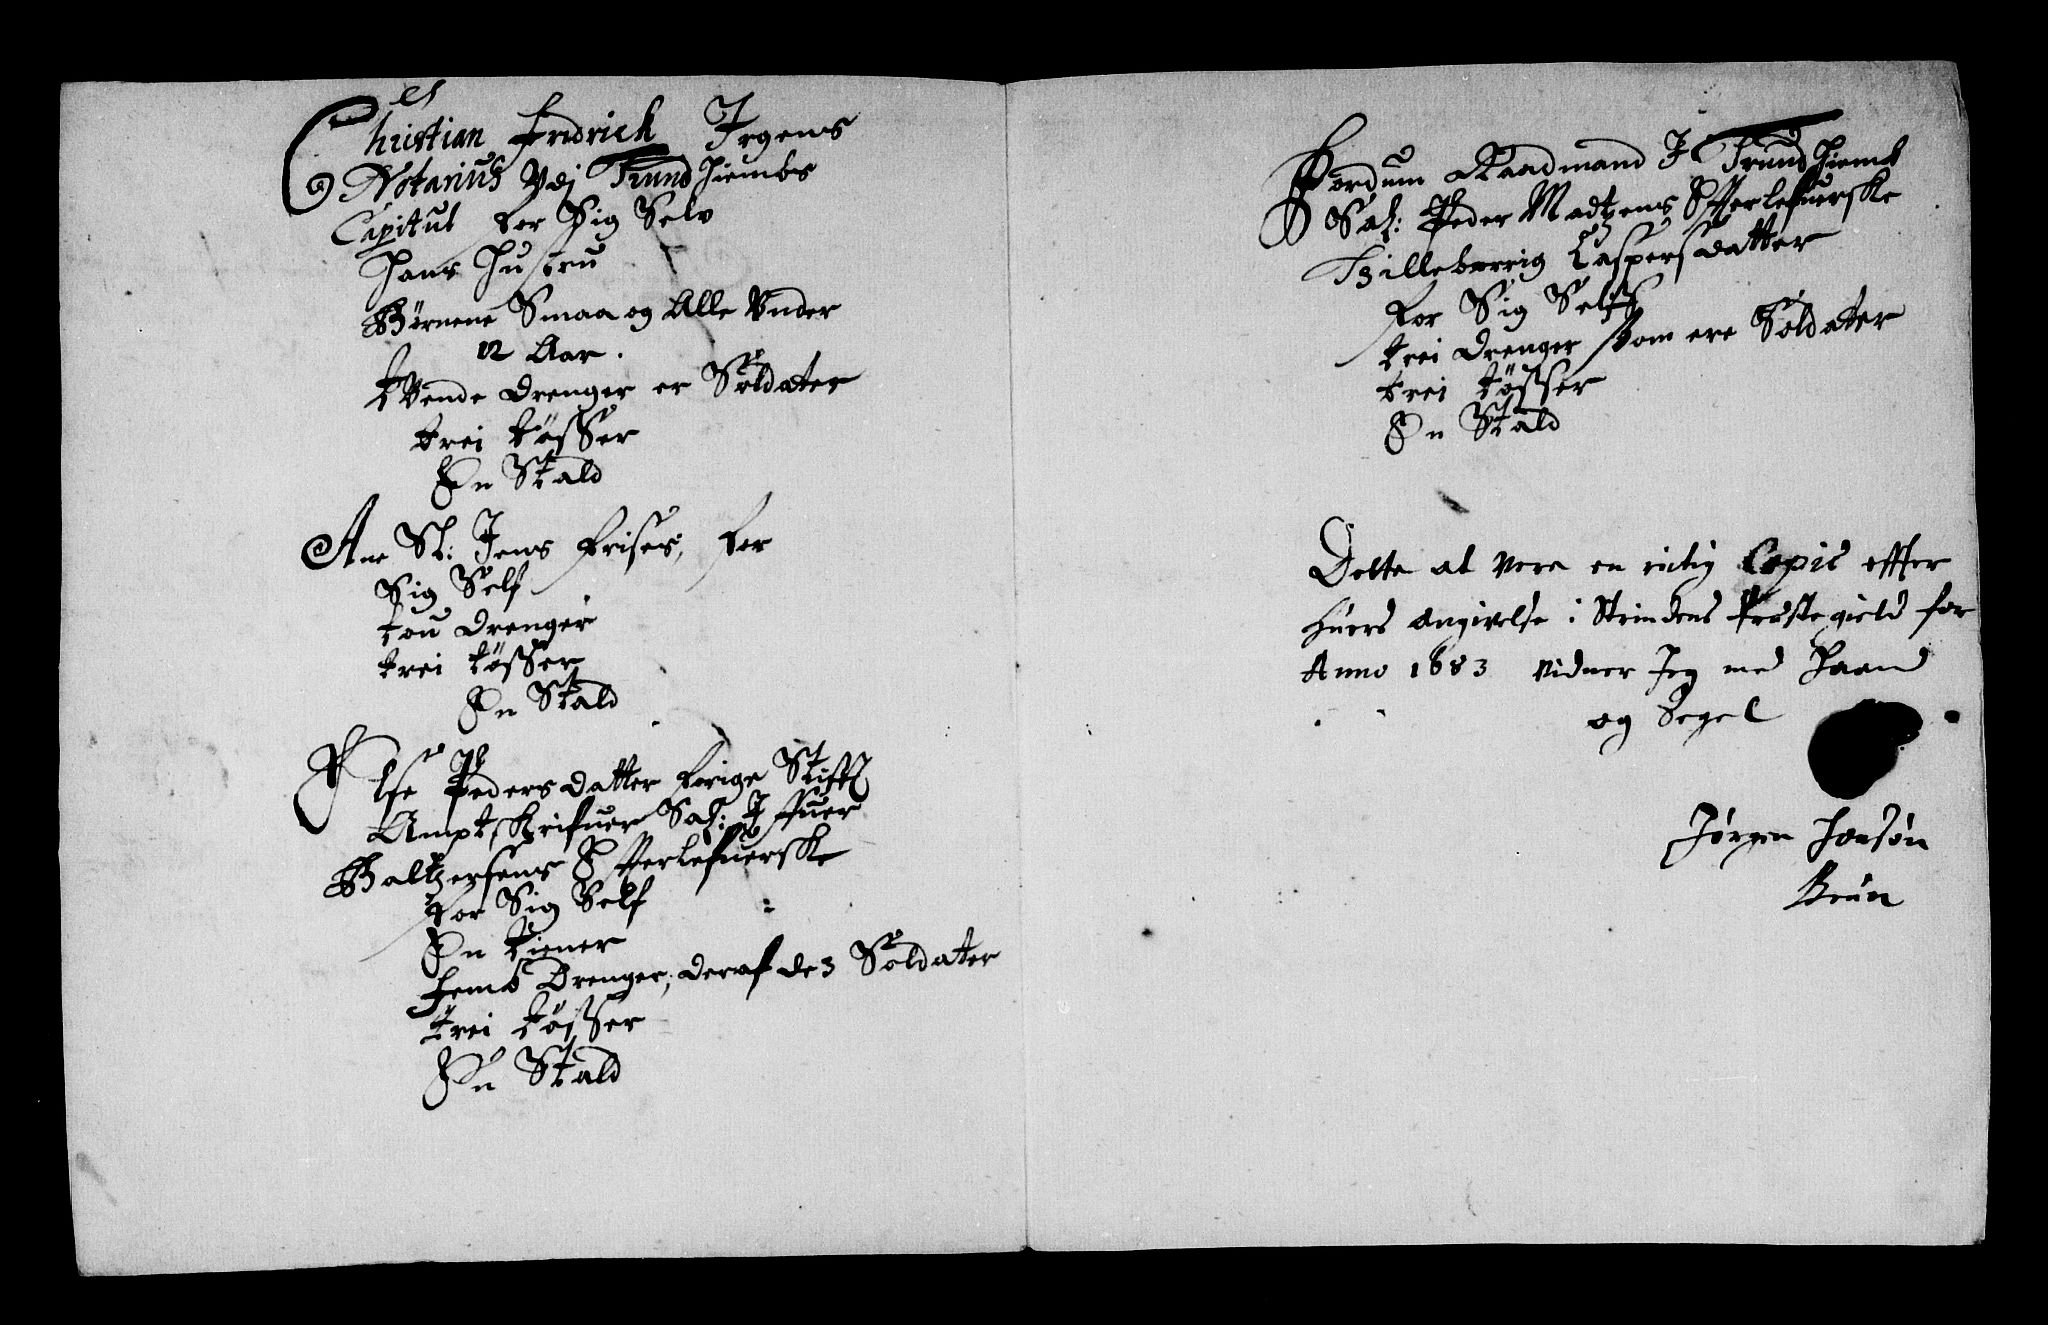 Christian Fridrich Irgens
Notarius Vdj Trundhiembs
Capitul for Sig Selv
Hans Hustru
Börnene Smaa og Alle Vnder
12 Aar.
tVende Drenger er Soldater
trei tösser
En Stald
Ane Sl: Jens Frises, for
Sig Self
tou Drenger
trei tösser
En Stald
Else Peders datter forige Stifft
Ampt skrifuer Sal: Iffuer
Baltzersens Effterlefuerske
for Sig Self
En tiener
fem 5 Drenger, deraf de 3 Soldater
trei tösser
En Stald
Fordum Raadmand I Trundhiemb
Sal: Peder Madtzens Efterlefuerske
Tzilleborrig Caspersdatter
for Sig Self
trei Drenger som ere Soldater
trei tösser
En Stald
Dette at vere en rictig Copie effter
huers angivelse i Strindens Prestegield for
Anno 1683 vidner Jeg med Haand
og Segel
Jörgen Jonsön
Brun